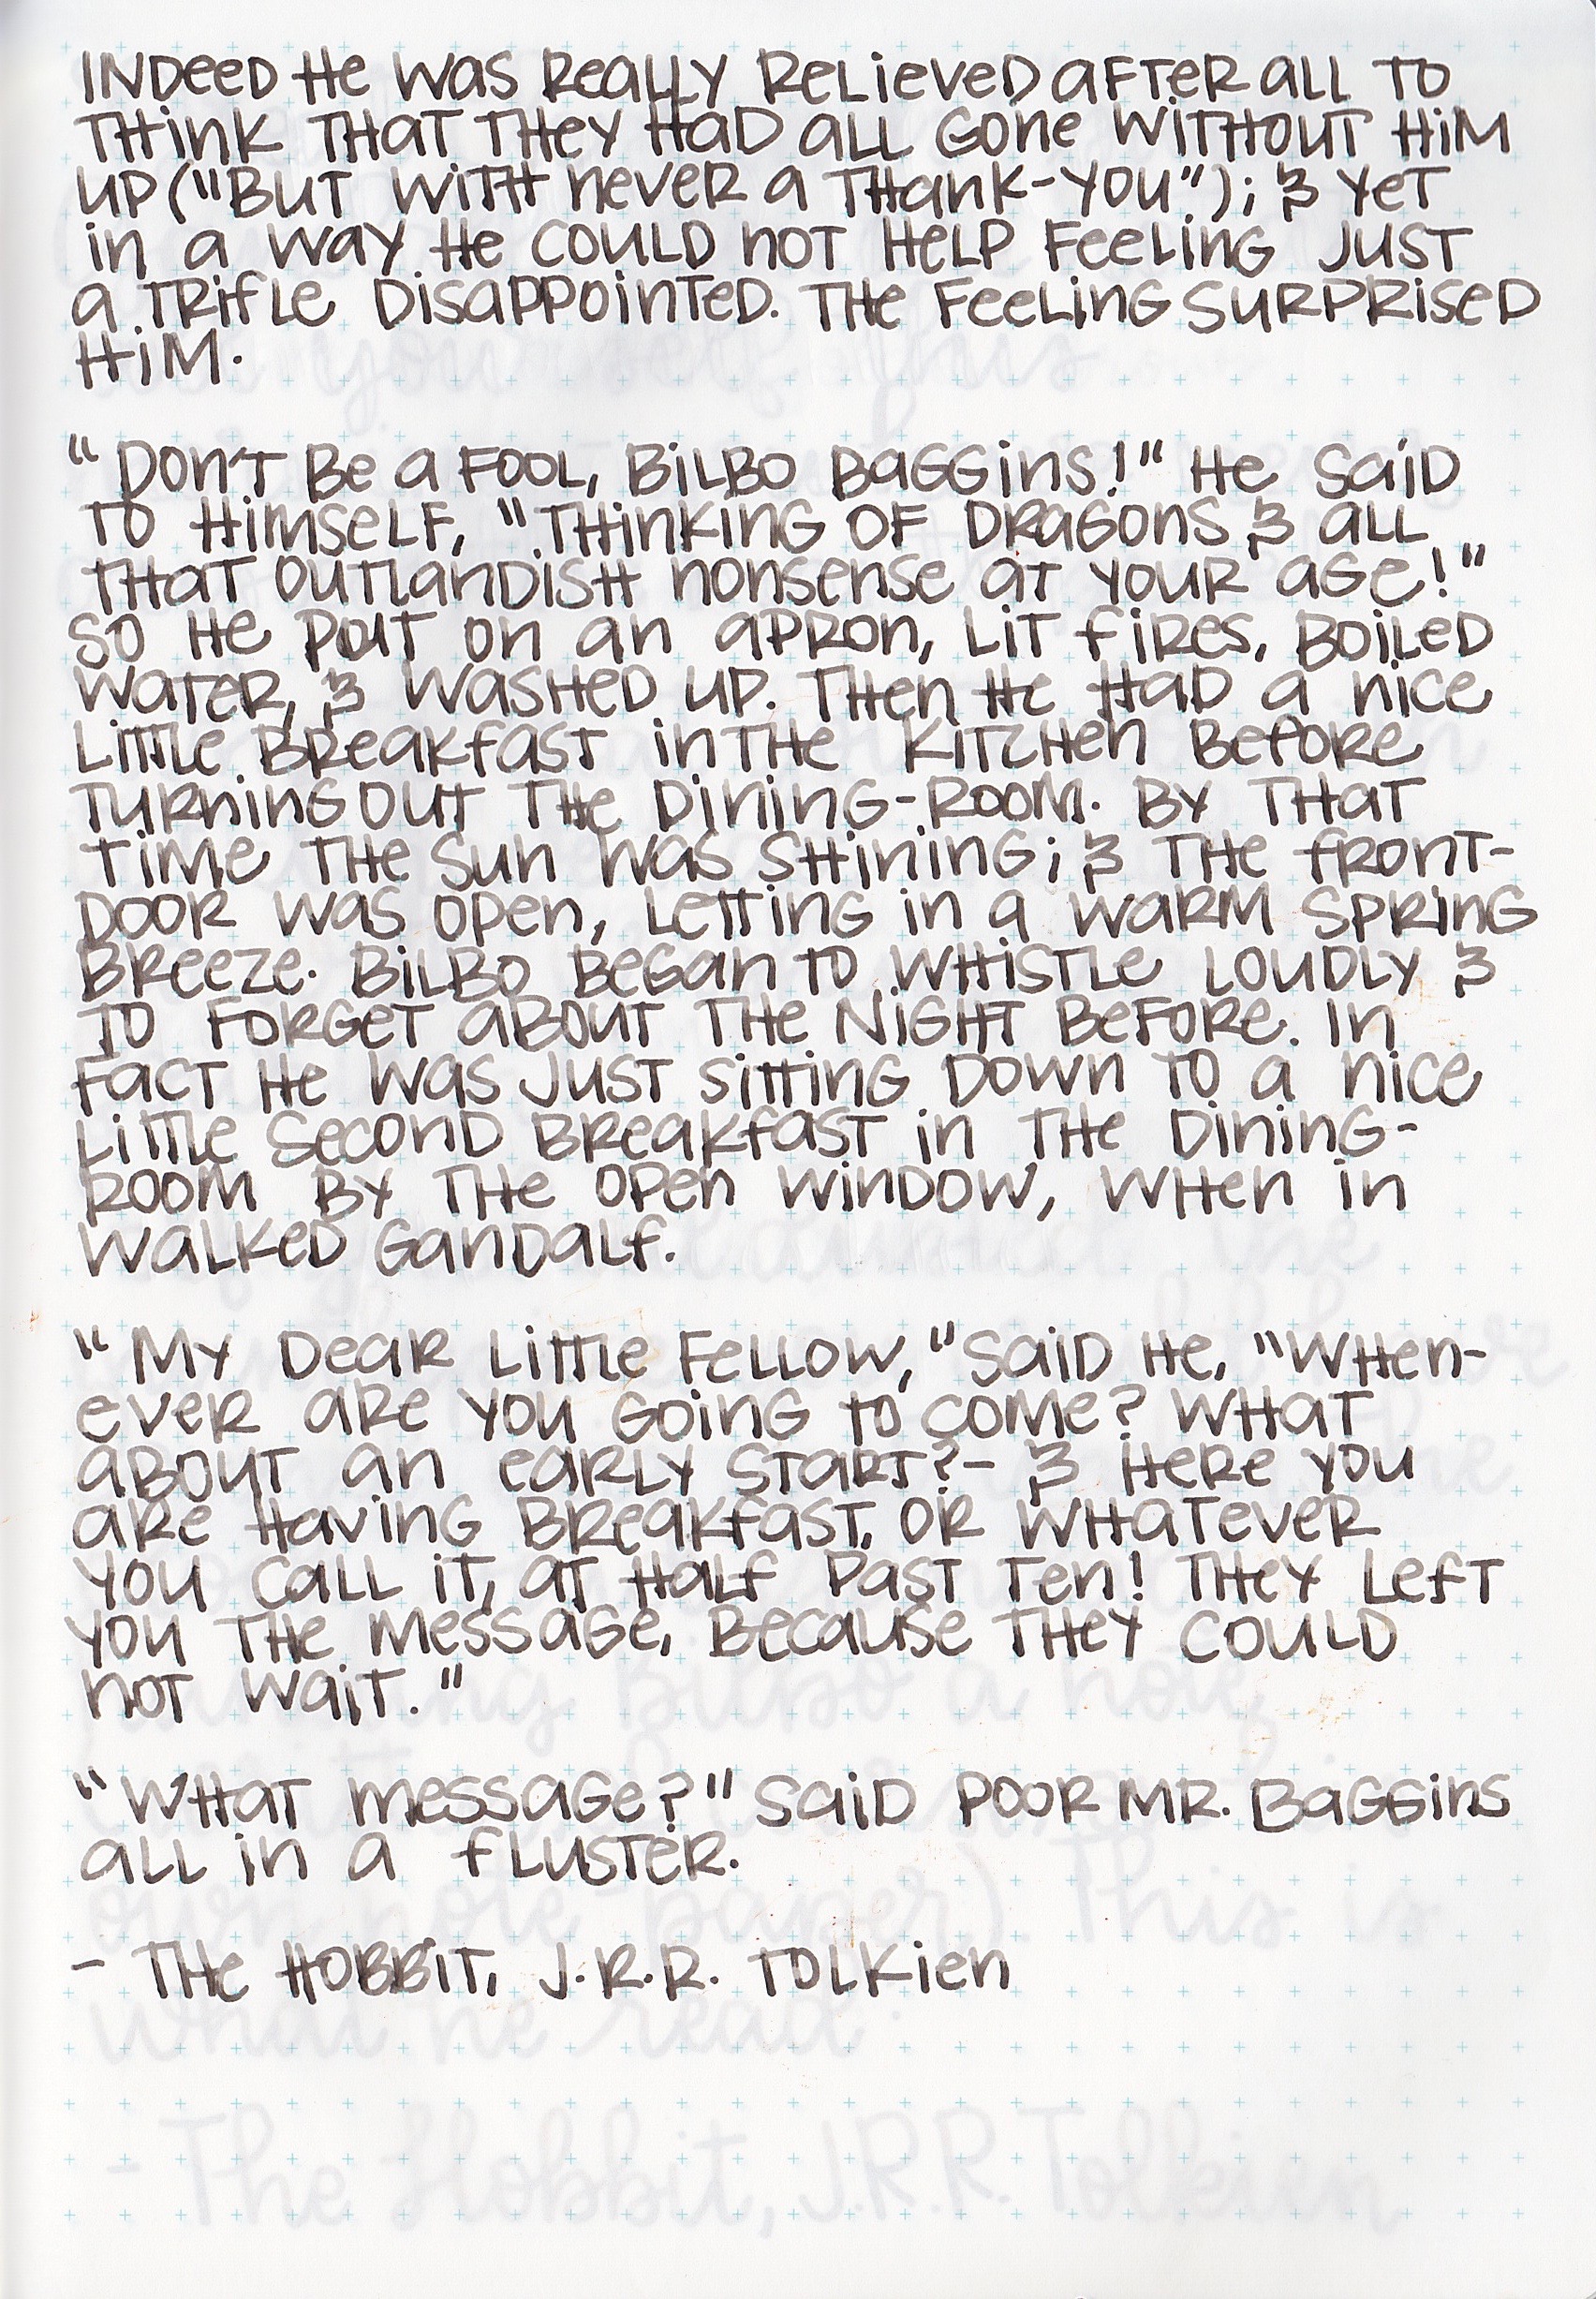 Indeed he was really relieved after all to
think that they had all gone without him
up ("But with never a thank-you"); & yet
in a way he could not help feeling just
a trifle disappointed. The feeling surprised
him.
"Don't be a fool, Bilbo Baggins!" he said
to himself, "Thinking of dragons & all
that outlandish nonsense at your age!"
So he put on an apron, lit fires, boiled
water, & washed up. Then he had a nice
little breakfast in the kitchen before
turning out the dining-room. By that
time the sun was shining; & the front-
door was open, letting in a warm spring
breeze. Bilbo began to whistle loudly &
to forget about the night before. In
fact he was just sitting down to a nice
little second breakfast in the dining-
room by the open window, when in
walked Gandalf.
"My dear little fellow," said he, "When-
ever are you going to come? What
about an early start?- & here you
are having breakfast, or whatever
you call it, at half past ten! They left
you the message, because they could
not wait."
"What message?" said poor Mr. Baggins
all in a fluster.
- The Hobbit, J.R.R. Tolkien